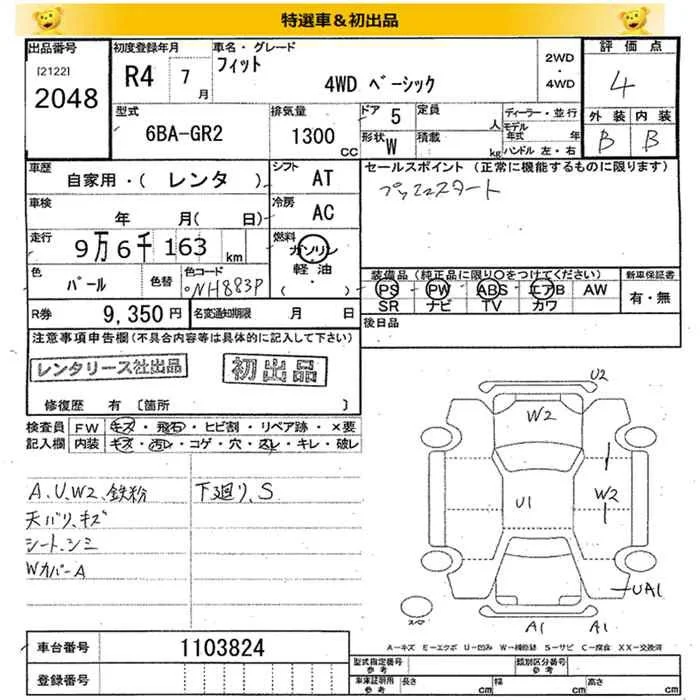 特選車＆初出品
出品番号
[2122]
2048
初度登録年月
R4 7 月
車名・グレード
フィット
4WD ベーシック
2WD
・
4WD
評価点
4
外装 内装
B B
型式
6BA-GR2
排気量
1300 CC
ドア 5
定員 人
形状 W
積載 kg
ディーラー・並行
モデル年式 年
ハンドル 左・右
車歴
自家用・( レンタ )
シフト
AT
セールスポイント (正常に機能するものに限ります)
プッシュスタート
車検
年 月( 日)
冷房
AC
走行
9万6千163 km
燃料
ガソリン
軽油
( ・ )
色
パール
色替
色コード
NH883P
装備品 (純正品に限り○をつけてください)
PS PW ABS エアB AW
SR ナビ TV カワ
新車保証書
有・無
R券
9,350円
名変通知期限 月 日
後日品
注意事項申告欄(不具合内容等は具体的に記入して下さい)
レンタリース社出品
初出品
修復歴 有 〔箇所 〕
検査員記入欄
FW キズ・飛石・ヒビ割・リペア跡・×要
内装 キズ・汚レ・コゲ・穴・スレ・キレ・破レ
A.U.W2.鉄粉
下廻り.S
天バリ.キズ
シート.シミ
WカバーA
U2
W2
U1
W2
UA1
A1
A1
スペア
A－キズ E－エクボ U－凹み W－補修跡 S－サビ C－腐食 XX－交換済
車台番号
1103824
登録番号
型式指定番号
参考
類別区分番号
参考
車庫証明用
参考
長さ cm
幅 cm
高さ cm